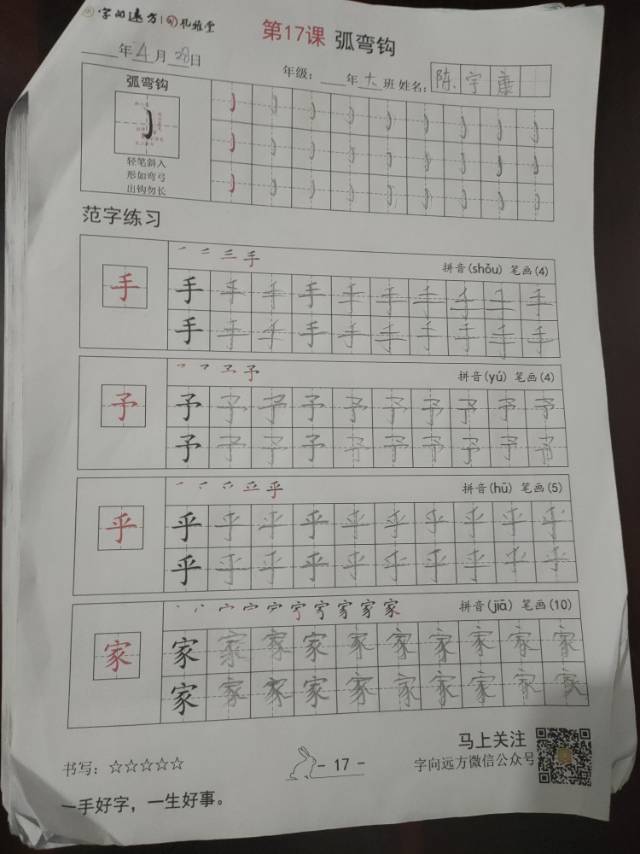 字向远方 孔雀堂
第17课 弧弯钩
年4月28日
年级: 年大班 姓名: 陈宇康
弧弯钩
轻笔斜入
形如弯弓
出钩勿长
范字练习
手 拼音(shǒu) 笔画(4)
手 手 手 手 手 手 手 手 手 手
手 手 手 手 手 手 手 手 手 手
予 拼音(yú) 笔画(4)
予 予 予 予 予 予 予 予 予 予
予 予 予 予 予 予 予 予 予 予
乎 拼音(hū) 笔画(5)
乎 乎 乎 乎 乎 乎 乎 乎 乎 乎
乎 乎 乎 乎 乎 乎 乎 乎 乎 乎
家 拼音(jiā) 笔画(10)
家 家 家 家 家 家 家 家 家 家
家 家 家 家 家 家 家 家 家 家
马上关注
书写: ☆☆☆☆☆
- 17 -
字向远方微信公众号
一手好字，一生好事。